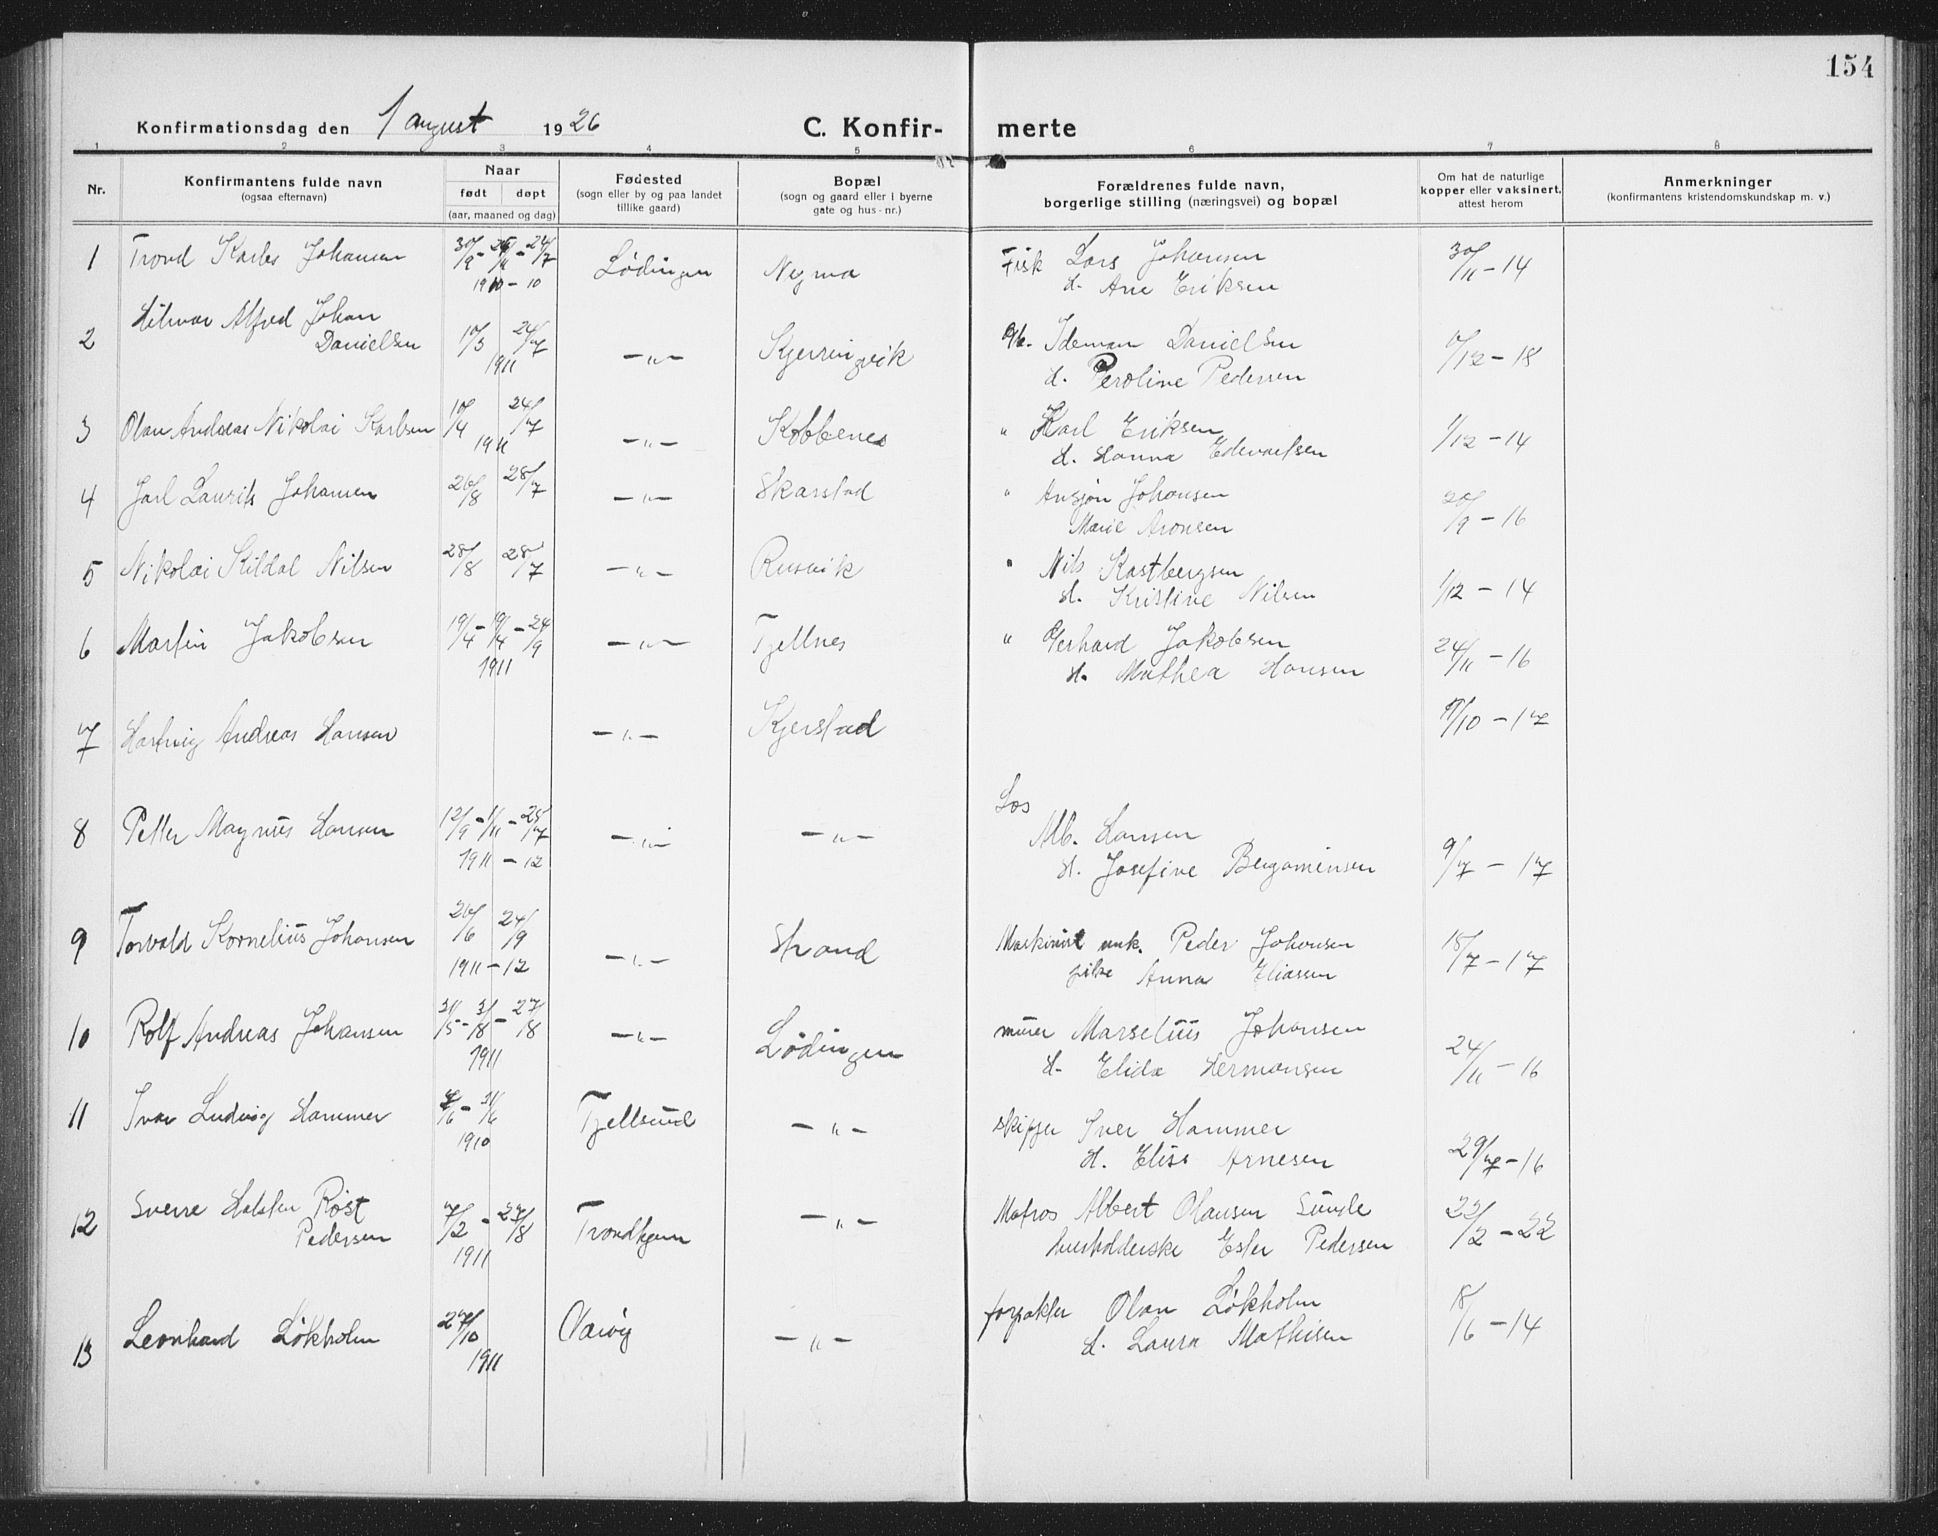 154
Konfirmationsdag den 1 august 1926
C. Konfirmerte
1 2 3 4 5 6 7 8
Nr.
Konfirmantens fulde navn
(ogsaa efternavn)
Naar
født døpt
(aar, maaned og dag)
Fødested
(sogn eller by og paa landet
tillike gaard)
Bopæl
(sogn og gaard eller i byerne
gate og hus-nr.)
Forældrenes fulde navn,
borgerlige stilling (næringsvei) og bopæl
Om hat de naturlige
kopper eller vaksinert,
attest herom
Anmerkninger
(konfirmantens kristendomskundskap m. v.)
1 Trond Karles Johansen 30/9 - 24/7 Lødingen Fisk Lars Johansen 30/11 - 14
1910 - 10 H. Ane Eriksen
Hilmar Alfred Johan
2 Danielsen 10/3 24/7 - " - Kjerringvik Ideman Danielsen /12 - 18
1911 H. Peroline Pedersen
3 Olav Andreas Nikolai Karlsen 10/4 24/7 - " - Kobbenes " Karl Eriksen 1/12 - 14
1911 H. Hanna Edevartsen
4 Jarl Laurits Johansen 26/8 28/7 - " - Skarstad " Johansen /9 - 16
Marie Aronsen
5 Nikolai Kildal Nilsen 28/8 28/7 - " - Rusvik " Nils Kastbergsen 1/12 - 14
H. Kristine Nilsen
6 Martin Jakobsen 19/4 - 19/4 - 24/9 - " - Tjellnes " Gerhard Jakobsen 24/11 - 16
1911 H. Mathea Hansen
7 Hartvig Andreas Hansen - " - Kjerstad /10 - 17
Los
8 Petter Magnus Hansen 12/9 - 1/11 - 25/7 - " - - " - Alb. Hansen 9/7 - 17
1911 - 12 H. Josefine Bergaminsen
9 Torvald Kornelius Johansen 26/6 24/9 - " - Strand Maskinist unk. Peder Johansen 18/7 - 17
1911 - 12 pike Anna Eliassen
10 Rolf Andreas Johansen 31/5 - 3/8 - 27/8 - " - Lødingen murer Marselius Johansen 24/11 - 16
1911 H. Elida Hermansen
11 Ivar Ludvig Hammer /6 - 3/6 Tjellsund - " - skipper Iver Hammer 29/7 - 16
1910 H. Elise Arnesen
Sverre Halsten Røst
12 Pedersen 7/2 - 27/8 Trondhjem - " - Matros Albert Olausen Sunde 22/2 - 22
1911 husholderske Ester Pedersen
13 Leonhard Løkholm 27/10 Værøy - " - forpakter Olav Løkholm 18/6 - 14
1911 H. Laura Mathisen